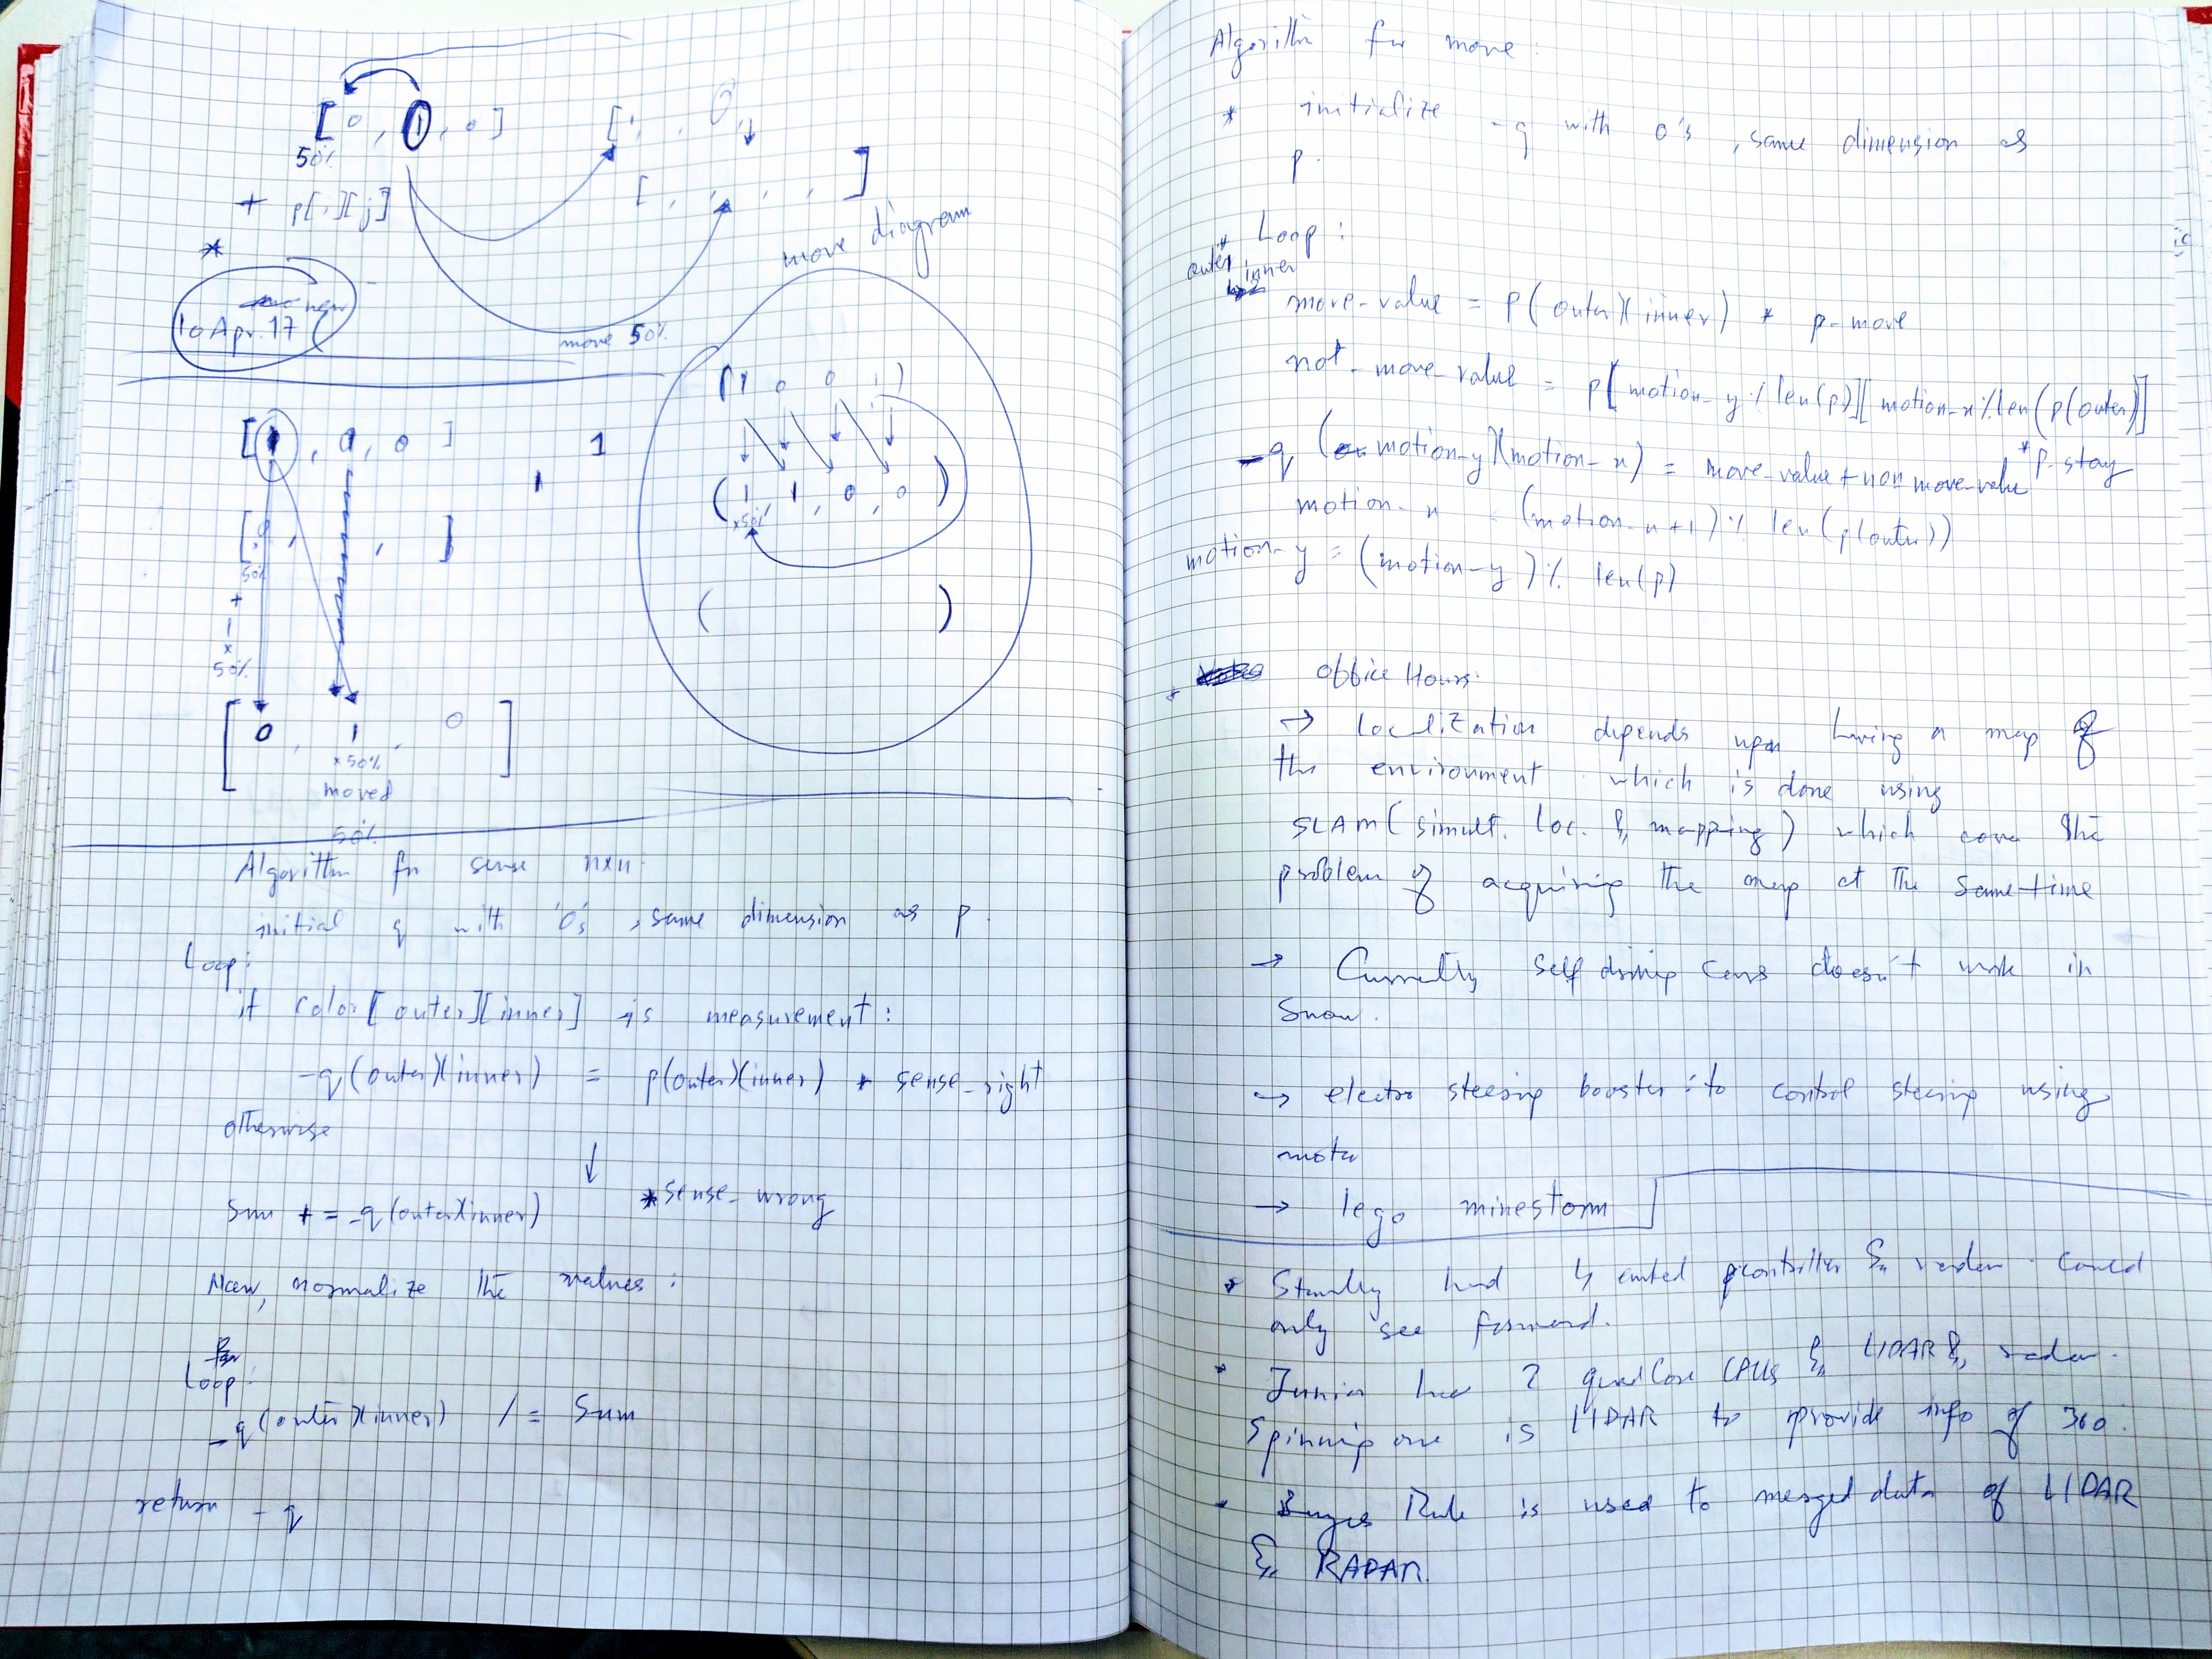 [ 0 , 1 , 0 ]
50%
+ p[i][j]
*
new
10 Apr. 17
move 50%
move diagram
[ 1 , 1 , 0 ]
1
1
50%
+
1
x
50%
[ 0 , 1 , 0 ]
x 50%
moved
50%
( 1 0 0 1 )
( 1 , 1 , 0 , 0 )
x50%
( )
Algorithm for sense nxn
initial q with '0's , same dimension as p.
Loop:
if color[outer][inner] is measurement:
-q(outer)(inner) = p(outer)(inner) * sense_right
otherwise
↓
* sense_wrong
sum += -q(outer)(inner)
Now, normalize the values :
Loop:
-q(outer)(inner) /= Sum
return - q
Algorithm for move :
* initialize -q with 0's , same dimension as
p.
* Loop :
outer
inner
move-value = P(outer)(inner) * p-move
not-move-value = p[motion-y % len(p)][motion-x % len(p(outer)]
-q (motion-y)(motion-x) = move-value + non move-value * p-stay
motion-x = (motion-x+1) % len(p(outer))
motion-y = (motion-y) % len(p)
* Office Hours:
→ localization depends upon having a map of
the environment which is done using
SLAM (simult. loc. & mapping) which cover the
problem of acquiring the map at the same time
→ Currently self driving cars doesn't work in
snow.
→ electro steering booster : to control steering using
motor
→ lego minestorm
* Stanley had & radar. Could
only see forward.
* Junior has 2 quadCore CPUs & LIDAR & radar.
Spinning one is LIDAR to provide info of 360.
* Bayes Rule is used to merged data of LIDAR
& RADAR.